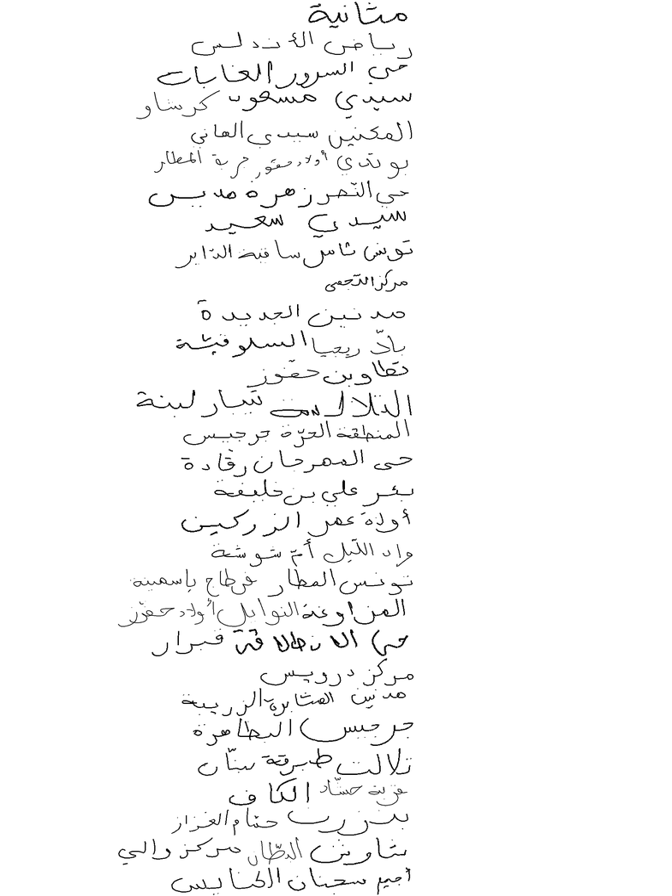 مثانية
رياض الأندلس
حي السرور الغابات
سيدي مسعود كرشاو
المكنين سيدي الهاني
بو ندي أولاد حفوز جربة المطار
حي النصر زهرة مدين
سيدي سعيد
تونس ثامر ساقية الدّاير
مركز التجمعي
مدنين الجديدة
بلاّ ريجيا السلوقيّة
تطاوين حفوز
التلالسة تيبار لبنة
المنطقة الحرّة جرجيس
حي المهرجان رقادة
بئر علي بن خليفة
أولاد عمر الزركين
واد اللّيل أمّ شوشة
تونس المطار قرطاج ياسمينة
المزاوغة النوايل أولاد حفّوز
حي الانطلاقة قبرار
مركز درويس
مدنين العشابرة الزريبة
جرجيس الطاهرة
تلالت طبرقة بنّان
قرية حشّاد الكاف
بنزرت حمّام الغزاز
شاوش الدخّان مركز والي
أجيم سجنان الكنايس